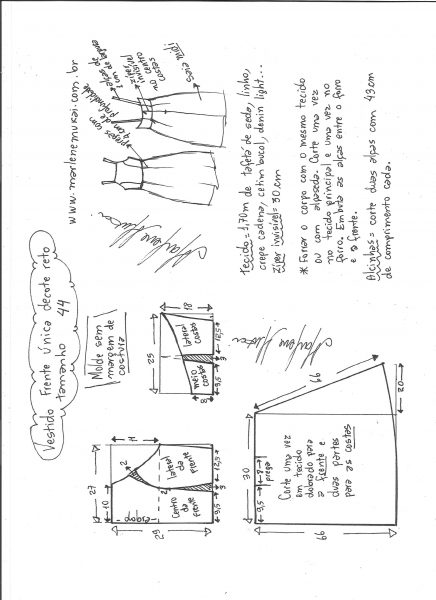 Vestido Frente Única decote reto
tamanho 44
www.marlenemukai.com.br
pregas com
4 cm de
profundidade
zíper
invisível
no centro
costas
Saia midi
Molde sem
margem de
costura
27
10
14
2
2
dobra
29
Centro
da
frente
lateral
da
frente
9,5
3
12,5
25
18
8
meio
costas
lateral
costas
9,5
3
12,5
Tecido = 1,70m de tafetá de seda, linho,
crepe cadena, cetim bucol, denin light...
zíper invisível = 30 cm
* Forrar o corpo com o mesmo tecido
ou com alpaseda. Corte uma vez
no tecido principal e uma vez no
forro. Embuta as alças entre o forro
e a frente.
Alcinhas = corte duas alças com 43cm
de comprimento cada.
30
9,5
8
prega
Corte uma vez
em tecido
dobrado para
a frente e
duas partes
para as costas
66
66
20